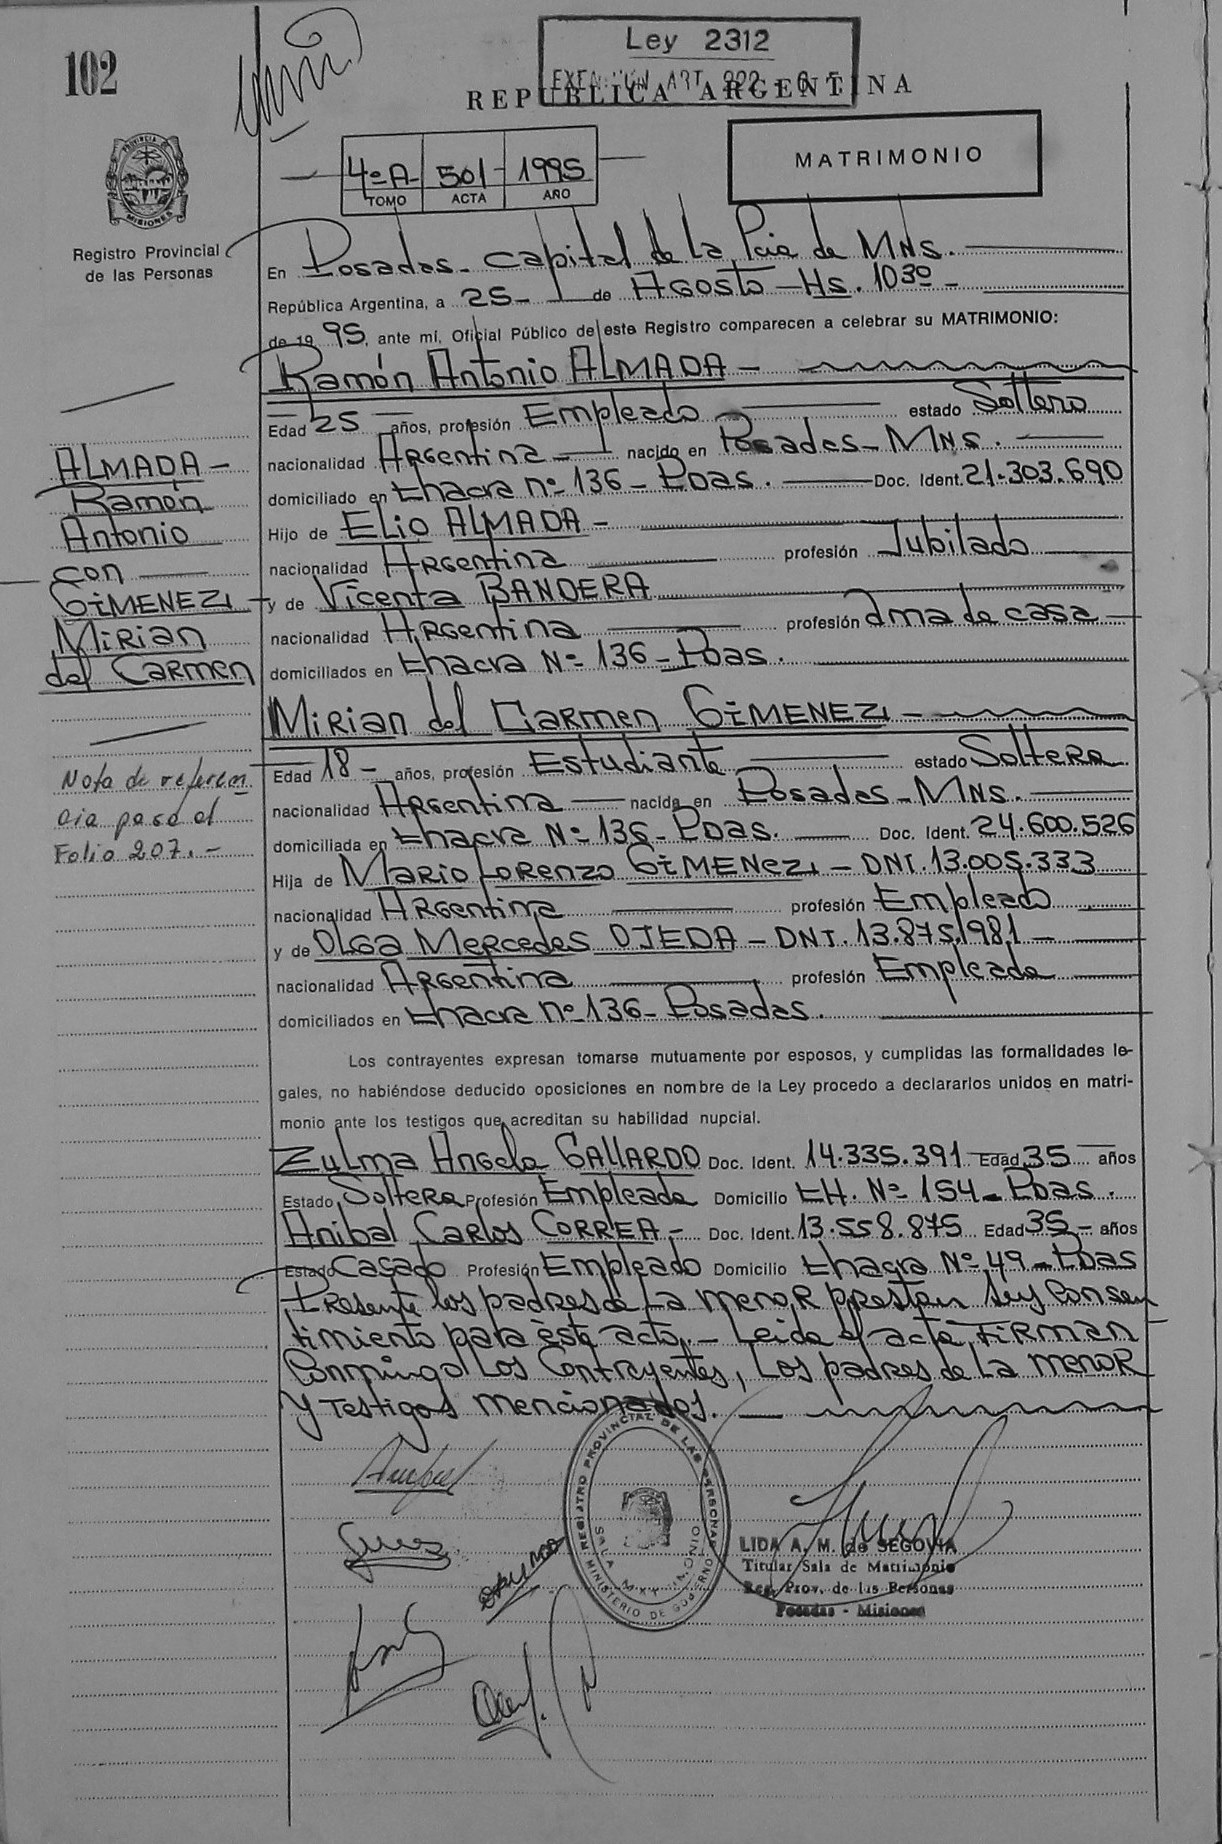 102
Ley 2312
EXENCIÓN ART
REPUBLICA ARGENTINA
4º A - 501 - 1995
TOMO ACTA AÑO
MATRIMONIO
PROVINCIA DE MISIONES
Registro Provincial
de las Personas
En Posadas - Capital de la Pcia de MNS.
República Argentina, a 25 - de Agosto - Hs. 10 30 -
de 19 95, ante mí, Oficial Público de este Registro comparecen a celebrar su MATRIMONIO:
Ramón Antonio ALMADA -
Edad 25 años, profesión Empleado estado Soltero
nacionalidad Argentina nacido en Posadas - MNS.
domiciliado en Chacra nº 136 - Pdas. Doc. Ident. 21.303.690
Hijo de Elio ALMADA -
nacionalidad Argentina profesión Jubilado
y de Vicenta BANDERA
nacionalidad Argentina profesión ama de casa
domiciliados en Chacra Nº 136 - Pdas.
ALMADA -
Ramón
Antonio
con
GiMENEZ
Mirian
del Carmen
Mirian del Carmen GiMENEZ -
Edad 18 - años, profesión Estudiante estado Soltera
nacionalidad Argentina nacida en Posadas - MNS.
domiciliada en Chacra Nº 136 - Pdas. Doc. Ident. 24.600.526
Hija de Mario Lorenzo GiMENEZ - DNI. 13.005.333
nacionalidad Argentina profesión Empleado
y de Olga Mercedes OJEDA - DNI. 13.875.981 -
nacionalidad Argentina profesión Empleada
domiciliados en Chacra nº 136 - Posadas.
Nota de referen
cia pasa al
Folio 207. -
Los contrayentes expresan tomarse mutuamente por esposos, y cumplidas las formalidades le-
gales, no habiéndose deducido oposiciones en nombre de la Ley procedo a declararlos unidos en matri-
monio ante los testigos que acreditan su habilidad nupcial.
Zulma Angela GALLARDO Doc. Ident. 14.335.391 Edad 35 años
Estado Soltera Profesión Empleada Domicilio CH. Nº 154 - Pdas.
Anibal Carlos CORREA - Doc. Ident. 13.558.875 Edad 35 - años
Estado Casado Profesión Empleado Domicilio Chacra Nº 49 - Pdas
Presente los padres de la menor prestan su Consen
timiento para éste acto. - Leida el acta, FiRman
Conmingo Los Contrayentes, Los padres de La menor
y Testigos mencionados.
REGISTRO PROVINCIAL DE LAS PERSONAS
SALA MATRIMONIO
MINISTERIO DE GOBIERNO
LIDA A. M. de SEGOVIA
Titular Sala de Matrimonio
Reg. Prov. de las Personas
Posadas - Misiones